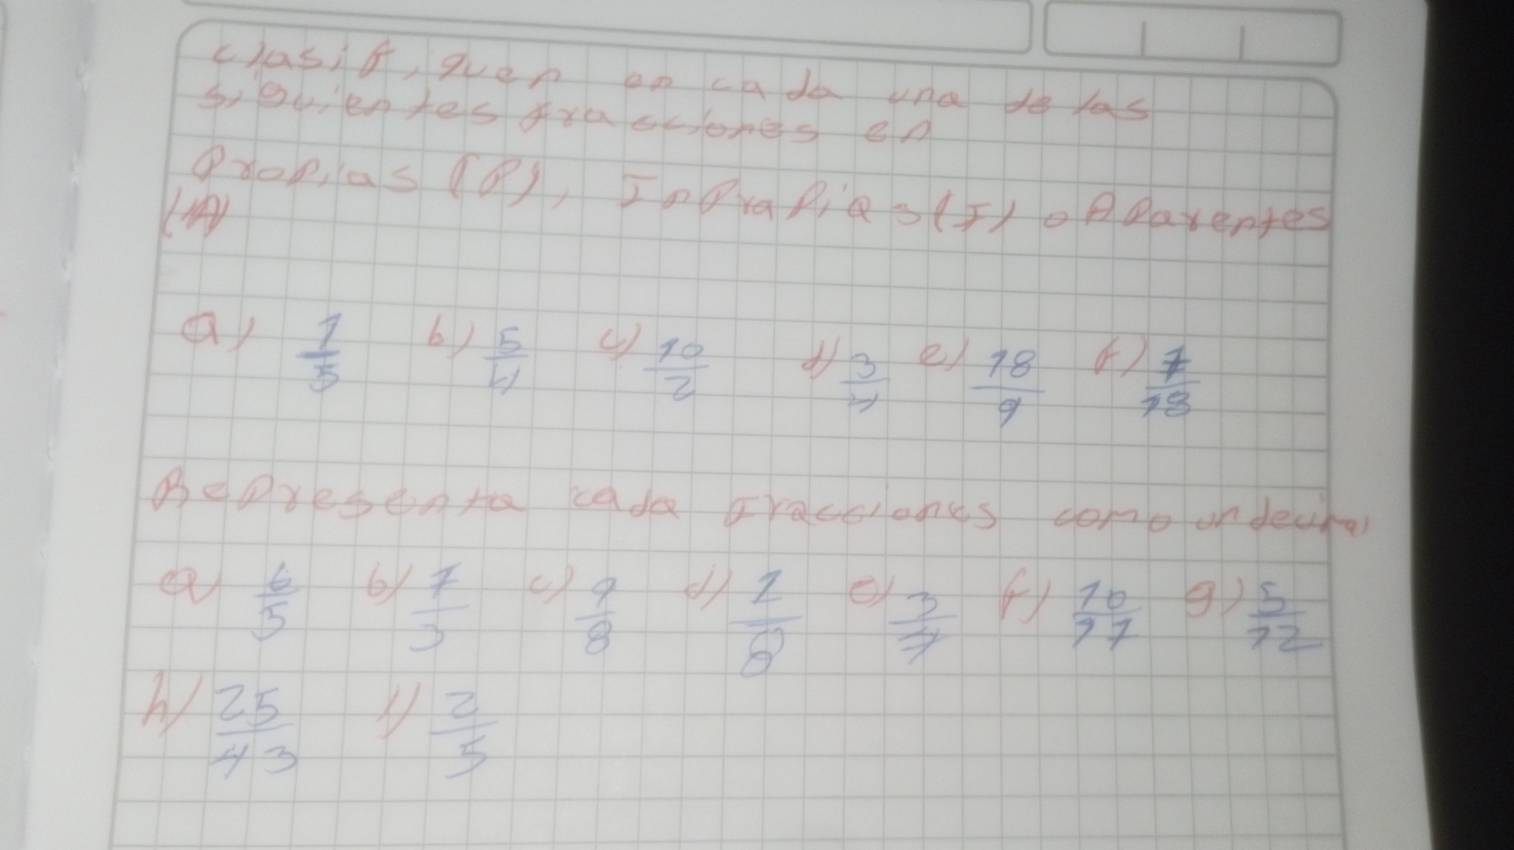 clasifiquen en cada una de las
siguientes fracciones en
Propias (P), Inpropias (I) o Aparentes
(A)
a) 1/5 b) 5/4 c) 10/2 d) 3/4 e) 18/9 f) 7/18
Representa cada fracciones como un decimal
a) 6/5 b) 1/3 c) 9/8 d) 1/8 e) 3/4 f) 10/11 g) 5/12
h) 25/43 i) 2/5